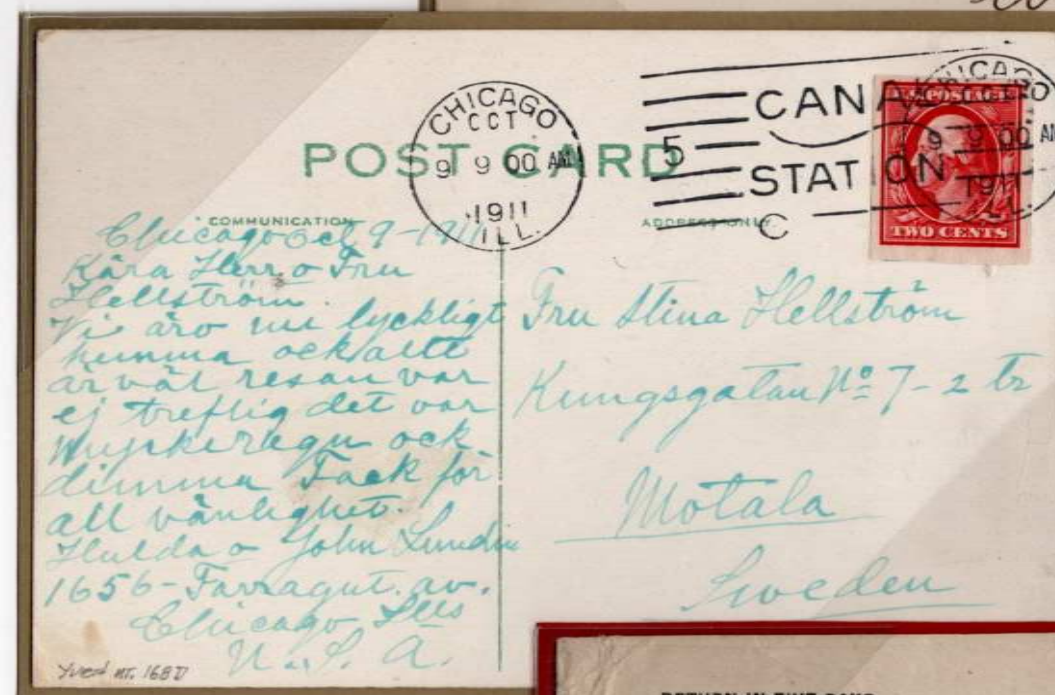 POST CARD
CHICAGO
OCT
9 9 00 AM
1911
ILL.
5
CANAL
STATION
C
CHICAGO
9 9 00 AM
1911
ILL.
U.S. POSTAGE
TWO CENTS
COMMUNICATION
ADDRESS ONLY
Chicago Oct 9-1911
Kära Herr o Fru
Hellström.
Vi äro nu lyckligt
hemma ock allt
är väl resan var
ej treflig det var
mycke regn ock
dimma Tack för
all vänlighet.
Hulda o John Lundin
1656-Farragut. av.
Chicago Ills
U.S.A.
Fru Stina Hellström
Kungsgatan No 7-2 tr
Motala
Sweden
Yvert nr. 168D
RETURN IN FIVE DAYS